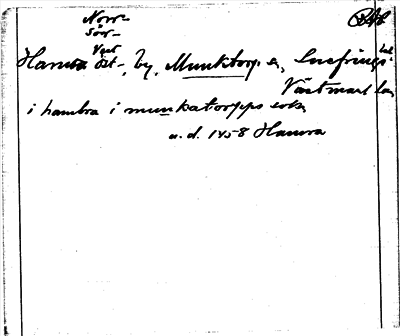 Norr-
Sör-
Väst
Hamra Öst-, by, Munktorp sn, Snefringe hd.
Västmanl. län
i hambra i munkatorpps sokn
u. d. 1458 Hamra